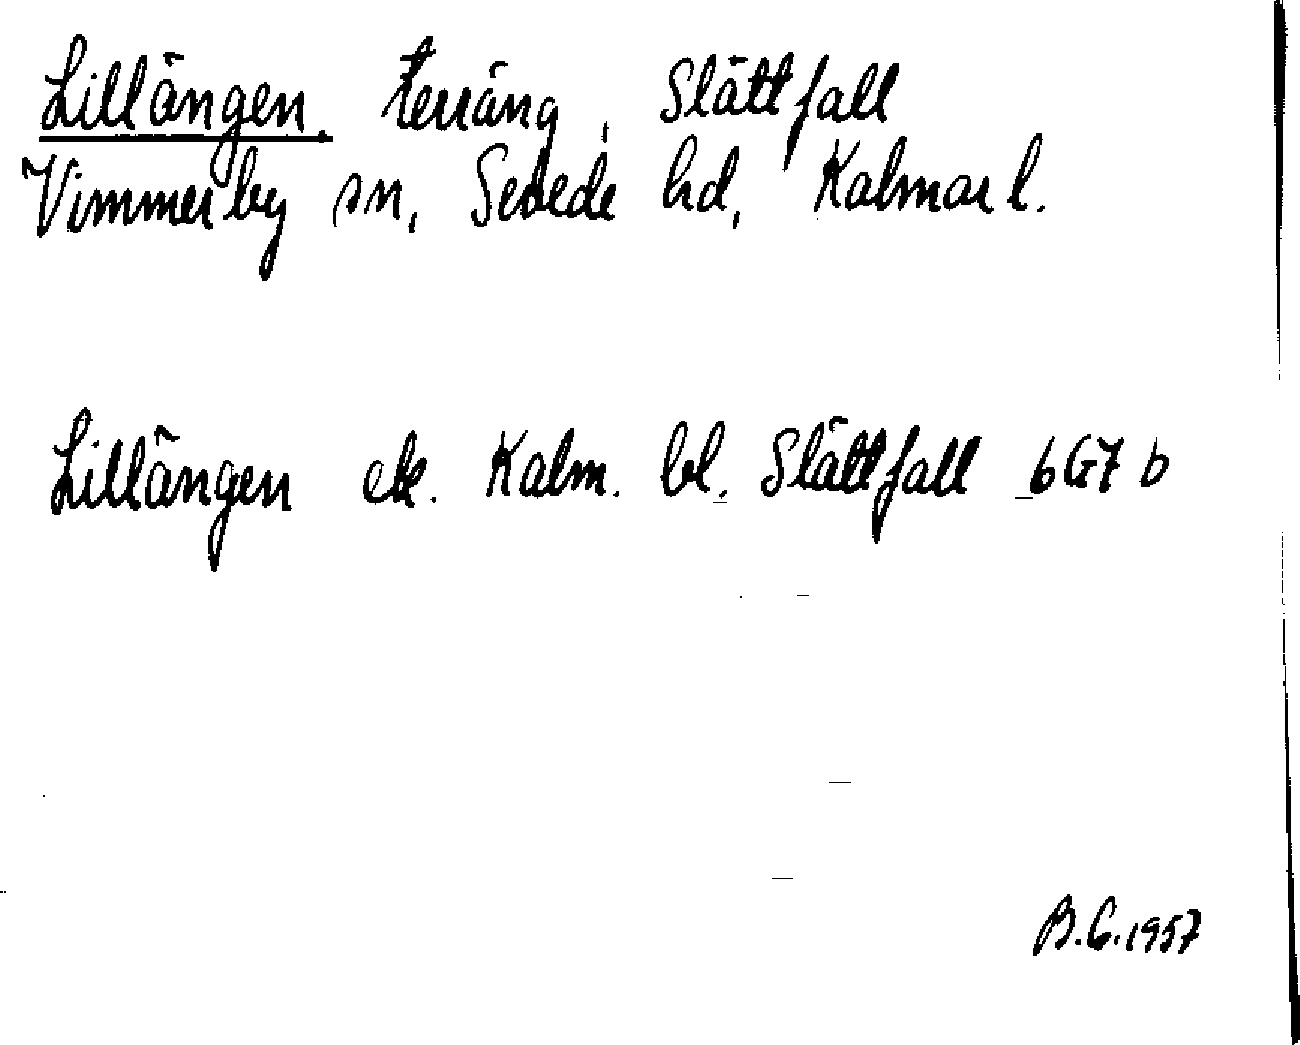 Lillängen. terräng, Slättfall
Vimmerby sn, Sevede hd, Kalmar l.
Lillängen ek. Kalm. bl. Slättfall 6G7b
B.G. 1957